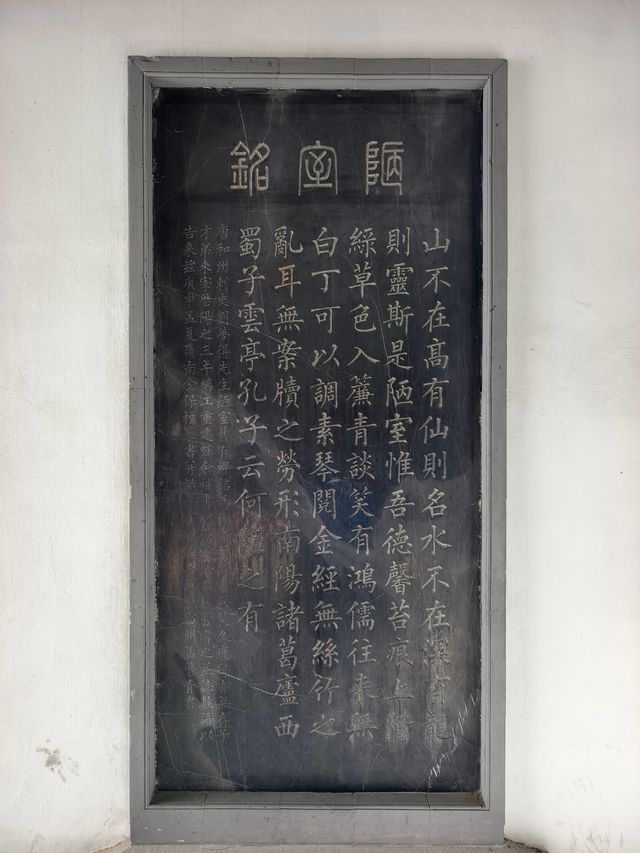 陋室銘
山不在高有仙則名水不在深有龍
則靈斯是陋室惟吾德馨苔痕上階
綠草色入簾青談笑有鴻儒往來無
白丁可以調素琴閱金經無絲竹之
亂耳無案牘之勞形南陽諸葛廬西
蜀子雲亭孔子云何陋之有
唐和州刺史劉夢得先生陋室
之三年鳩工重
告來茲庚申孟夏嶺南金保福書并識